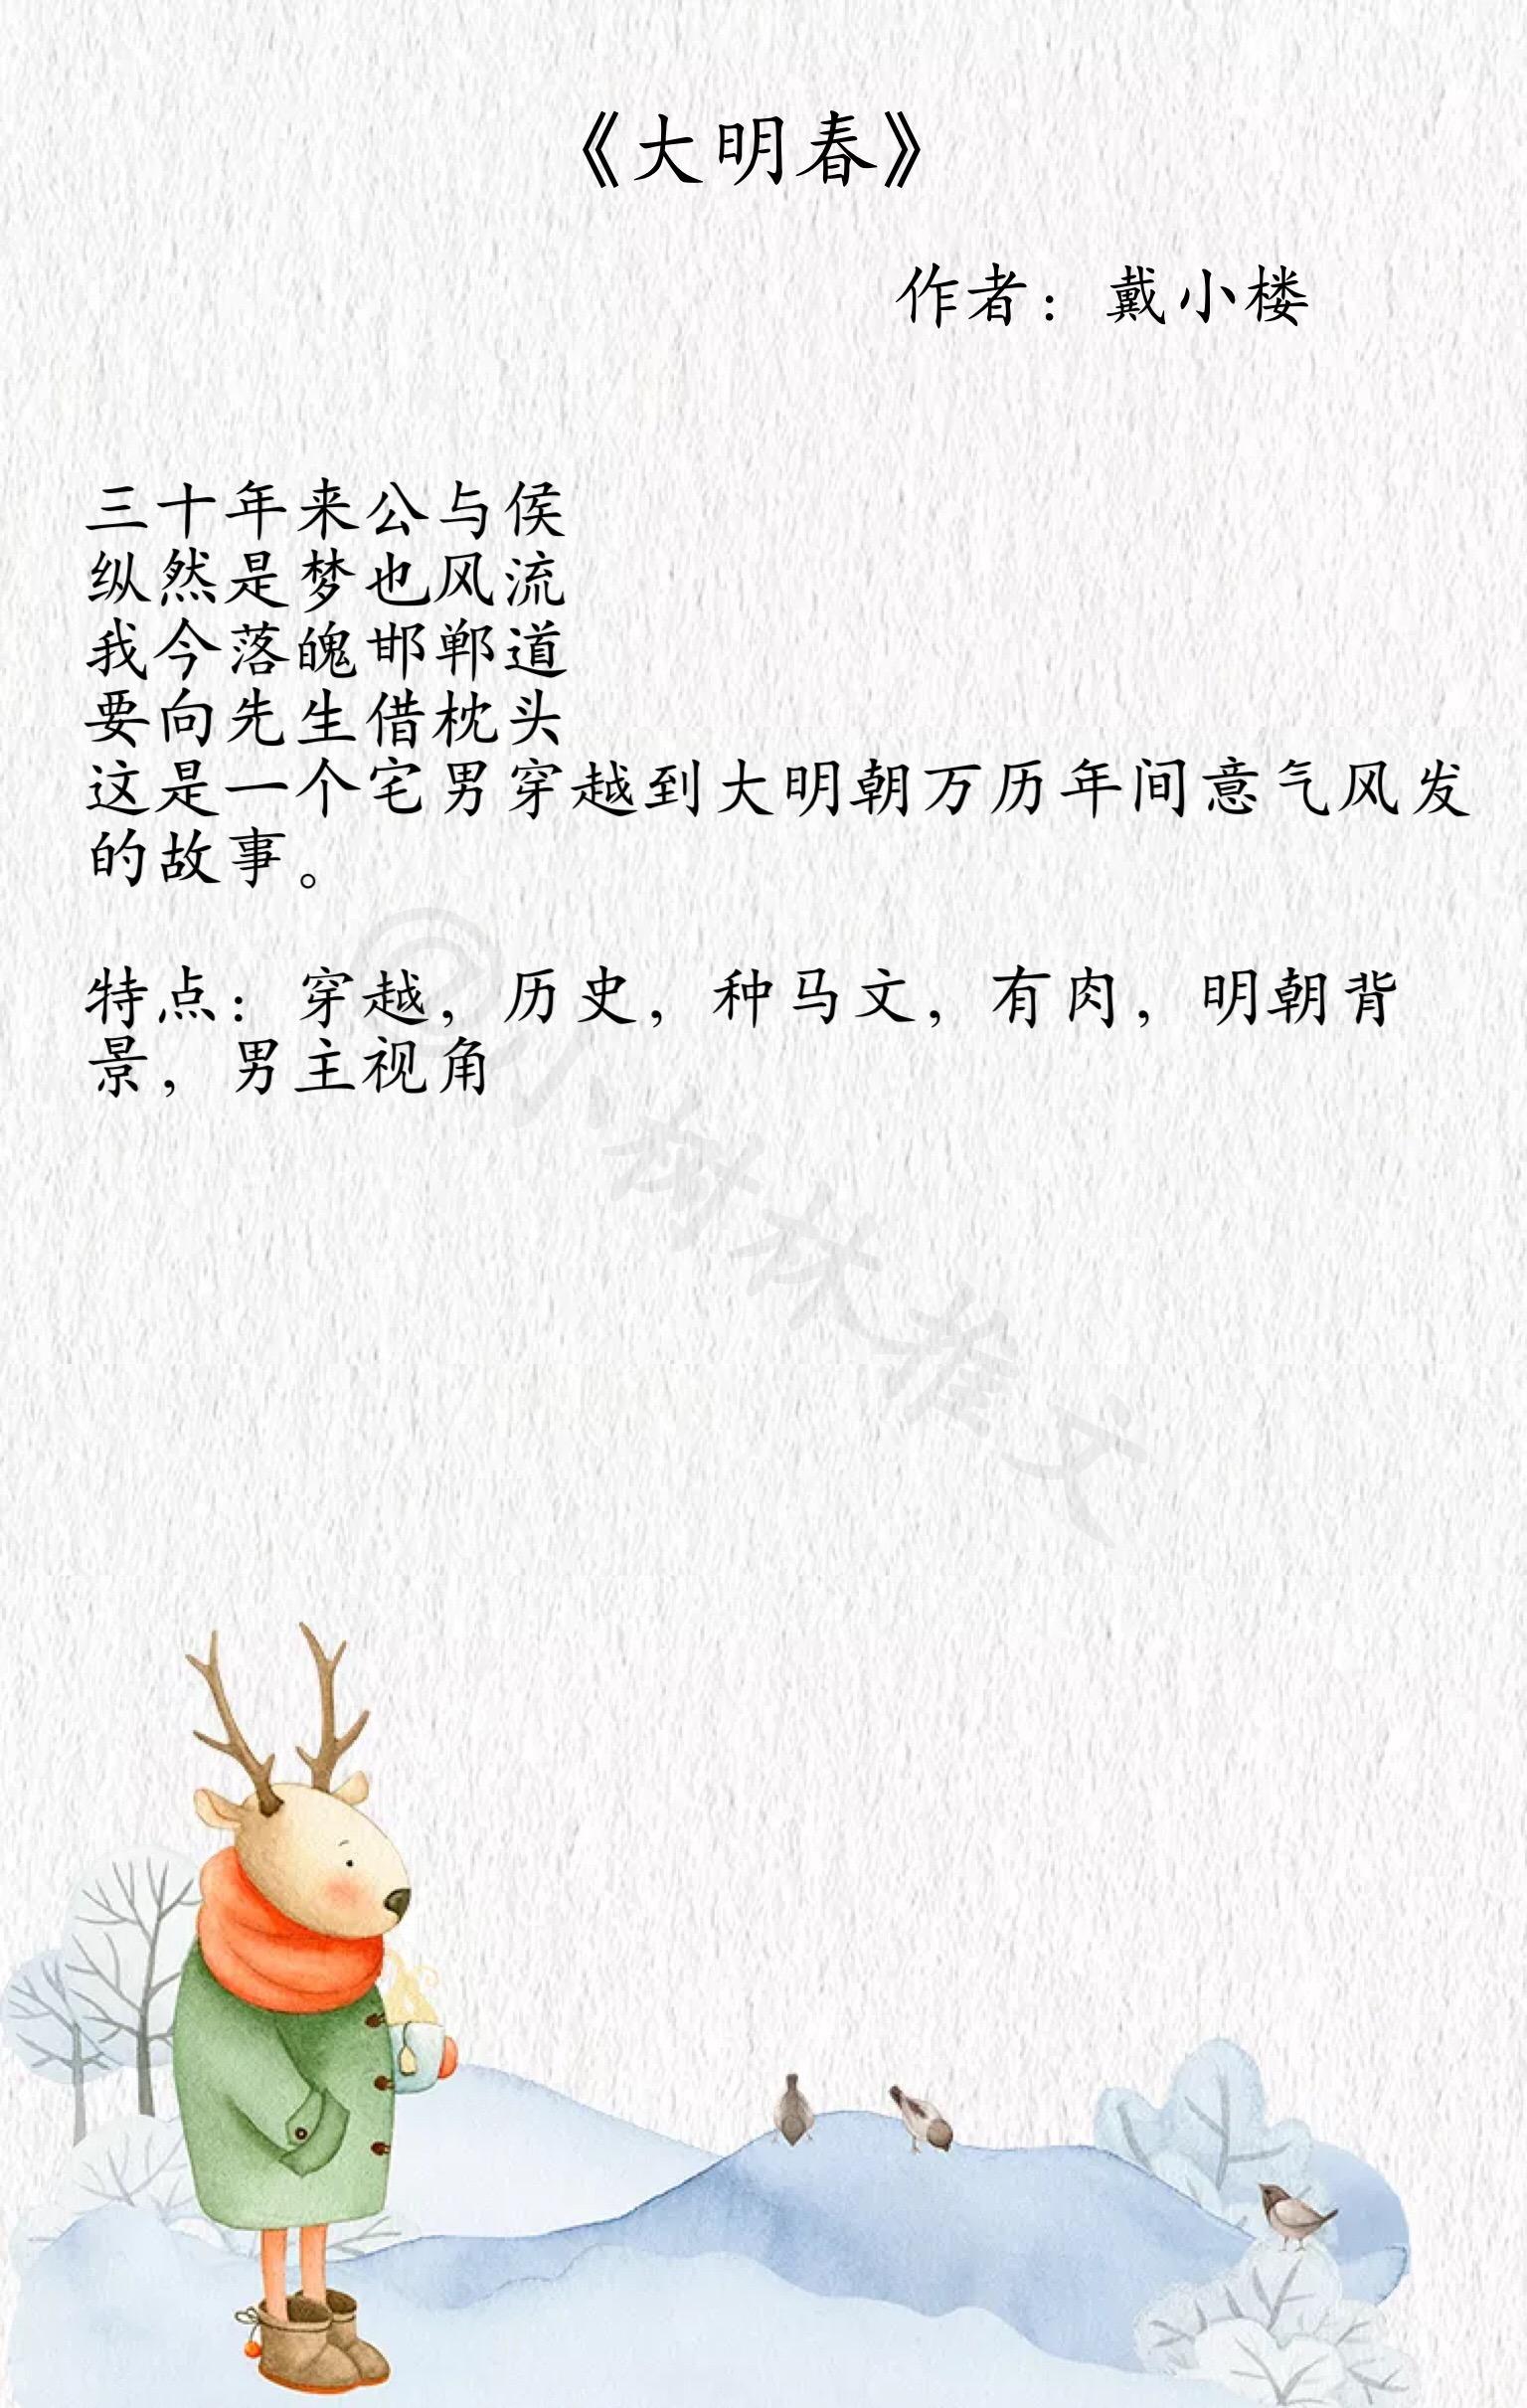 《大明春》
作者：戴小楼
三十年来公与侯
纵然是梦也风流
我今落魄邯郸道
要向先生借枕头
这是一个宅男穿越到大明朝万历年间意气风发
的故事。
特点：穿越，历史，种马文，有肉，明朝背
景，男主视角
@小树林推文